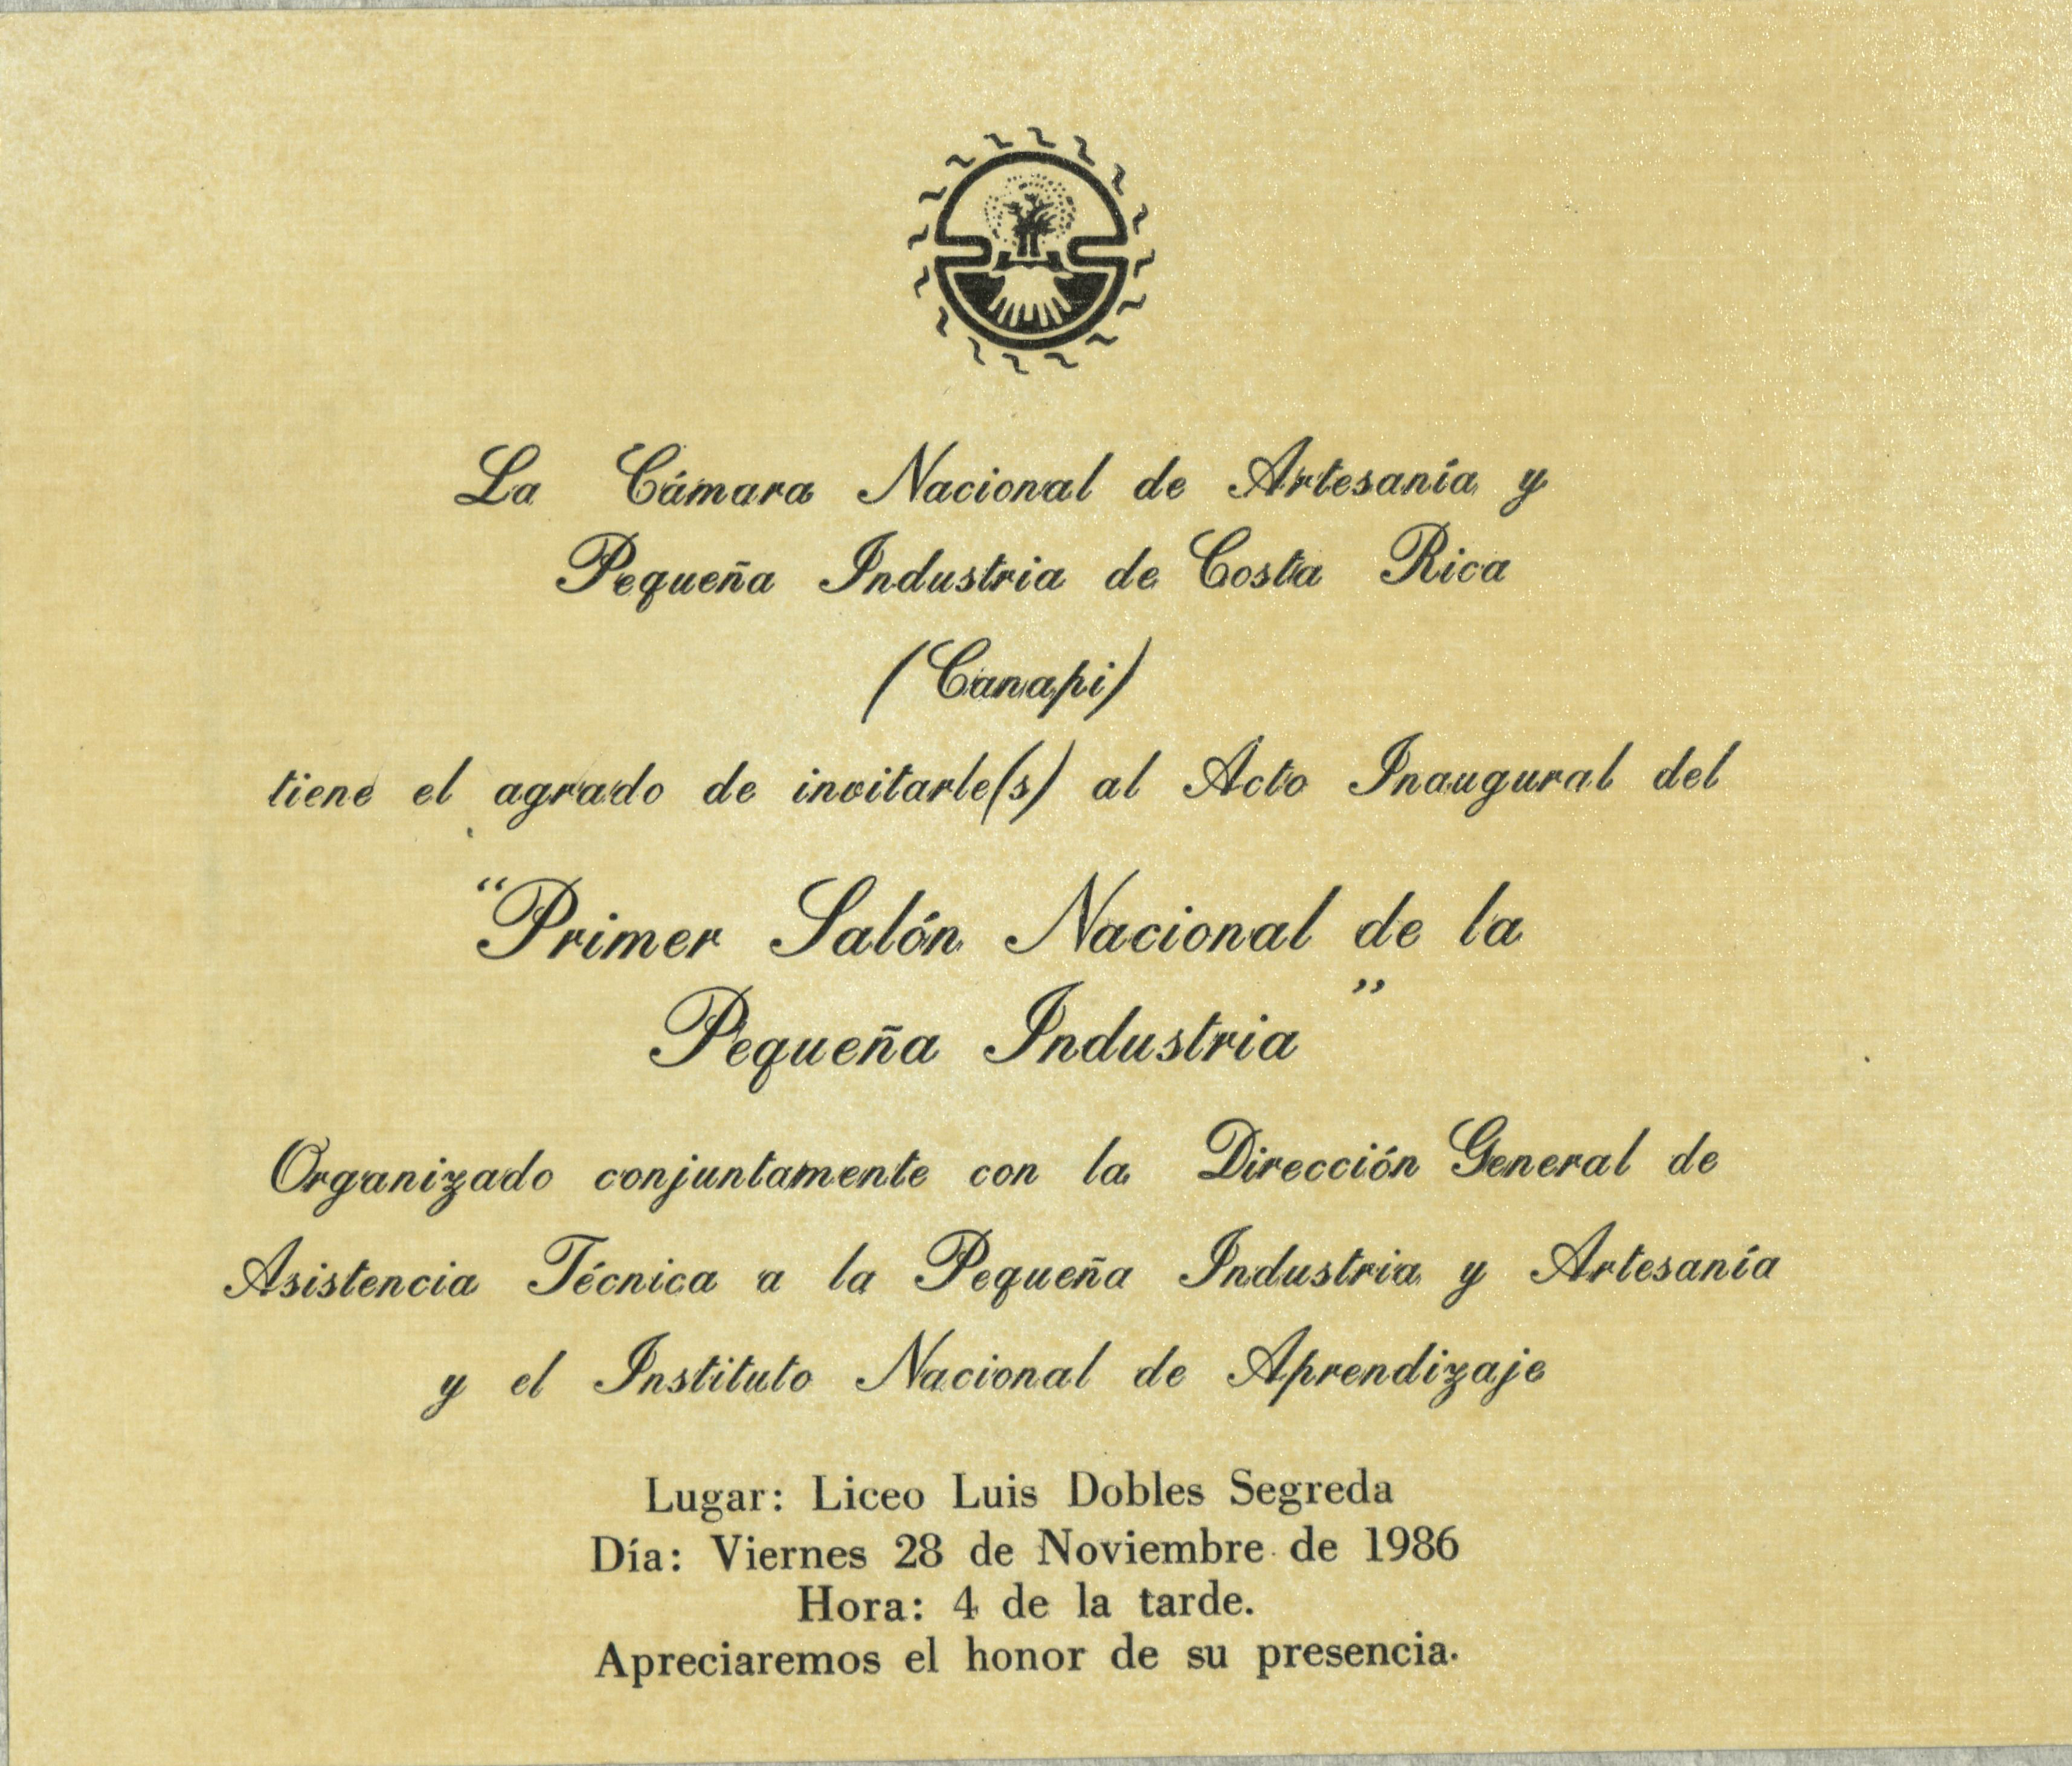 La Cámara Nacional de Artesanía y
Pequeña Industria de Costa Rica
(Canapi)
tiene el agrado de invitarle(s) al Acto Inaugural del
“Primer Salón Nacional de la
Pequeña Industria”
Organizado conjuntamente con la Dirección General de
Asistencia Técnica a la Pequeña Industria y Artesanía
y el Instituto Nacional de Aprendizaje
Lugar: Liceo Luis Dobles Segreda
Día: Viernes 28 de Noviembre de 1986
Hora: 4 de la tarde.
Apreciaremos el honor de su presencia.